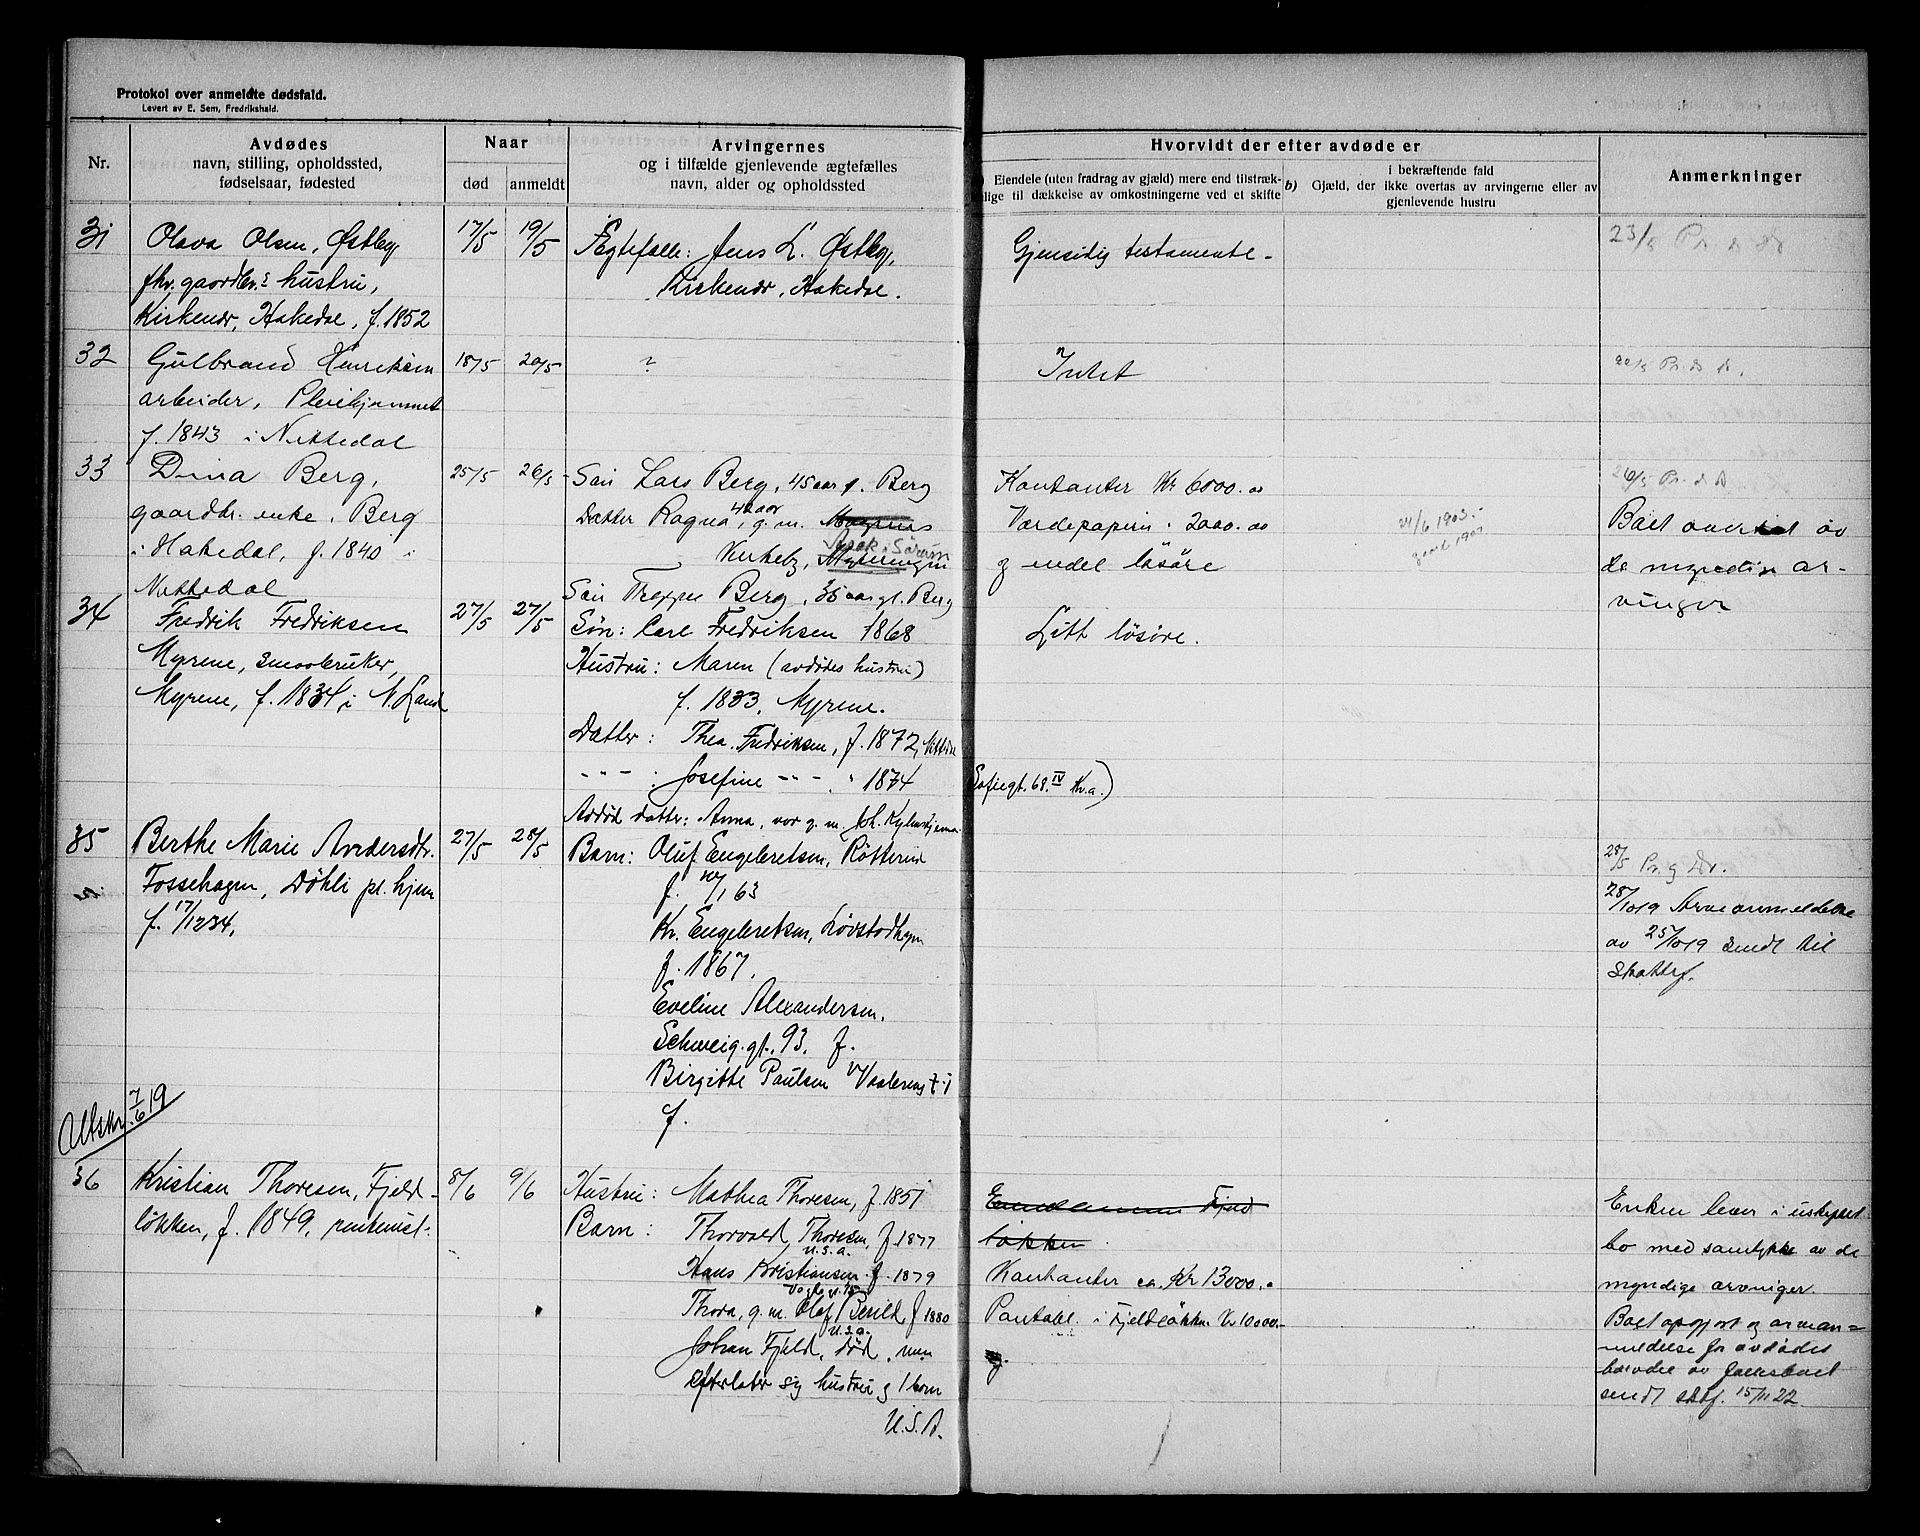 Protokol over anmeldte dødsfald.
Levert av E. Sem, Fredrikshald.
Nr.
Avdødes
navn, stilling, opholdssted,
fødselsaar, fødested
Naar
død
anmeldt
Arvingernes
og i tilfælde gjenlevende ægtefælles
navn, alder og opholdssted
Hvorvidt der efter avdøde er
Eiendele (uten fradrag av gjæld) mere end tilstræk-
lige til dækkelse av omkostningerne ved et skifte
b)
i bekræftende fald
Gjæld, der ikke overtas av arvingerne eller av
gjenlevende hustru
Anmerkninger
31
Olava Olsen, Østby,
fhv. gaardbr.s hustru,
Kirkenær, Hakedal, f. 1852
17/5
19/5
Ægtefælle: Jens L. Østby,
Kirkenær, Hakedal.
Gjensidig testamente.
23/5
32
Gulbrand Henriksen
arbeider, Pleiehjemmet
f. 1843 i Nittedal
18/5
20/5
?
Intet
33
Dina Berg,
gaardbr. enke, Berg
i Hakedal, f. 1840 i
Nittedal
25/5
26/5
Søn Lars Berg, 45 aar g. Berg
Datter Ragna, 42 aar g. m. Magnus
Virkeby,
Søn Trygve Berg, 35 aar gl. Berg
Kontanter Kr 6000.00
Værdepapirer 2000.00
og endel løsøre
26/5 Pr. d. D
Boet overtat av
de myndige ar-
vinger
34
Fredrik Fredriksen
Myrene, smaabruker,
Myrene, f. 1834 i N. Land
27/5
27/5
Søn: Carl Fredriksen 1868
Hustru: Maren (avdødes hustru)
f. 1833, Myrene.
Datter: Thea Fredriksen, f. 1872,
" " - : Josefine " " - " 1874
Sofiegt. 68 IV Kr.a.)
Avdød datter: Anna, var g. m. Joh.
Litt løsøre.
35
Berthe Marie Andersdtr.
Fossehagen, Døhli pl. hjem
f. 17/12 34.
27/5
28/5
Barn: Oluf Engebretsen, Rotterud
63
Kr. Engebretsen, Løvstadhagen
f. 1867.
Eveline Alexandersen,
Schweig. gt. 93. f.
Birgitte Paulsen
f.
28/5 Pr. g Dr.
28/10 19 Arveanmeldelse
av 25/10 19 sendt til
skattef.
Utskr. 7/6 19
36
Kristian Thoresen, Fjeld-
løkken, f. 1849, rentenist.
8/6
9/6
Hustru: Mathea Thoresen, f. 1851
Barn: Thorvald Thoresen, f. 1877
U.S.a.
Hans Kristiansen f. 1879
Thora, g. m. Olaf f 1880
U.S.a.
Johan Fjeld, død, men
efterlater sig hustru og 1 barn
U.S.A.
Eiendommen Fjeld
løkken
Kontanter ca. Kr 13000.-
Pantobl. i Fjeldløkken Kr 10000.-
og.
Enken lever i uskiftet
bo med samtykke av de
myndige arvinger.
Boet opgjort og arvean-
meldelse for avdødes
bodel av fællesboet
sendt skttf. 15/11 22